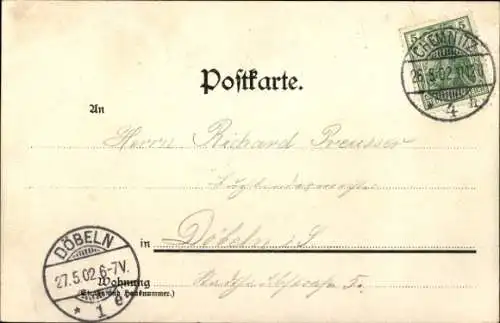 5 5
CHEMNITZ
26.5.02
4
Postkarte.
An
Herrn Richard Preusser
in Döbeln i/S
DÖBELN
27.5.02.6-7V.
* 1 e
Wohnung
(Straße und Hausnummer.)